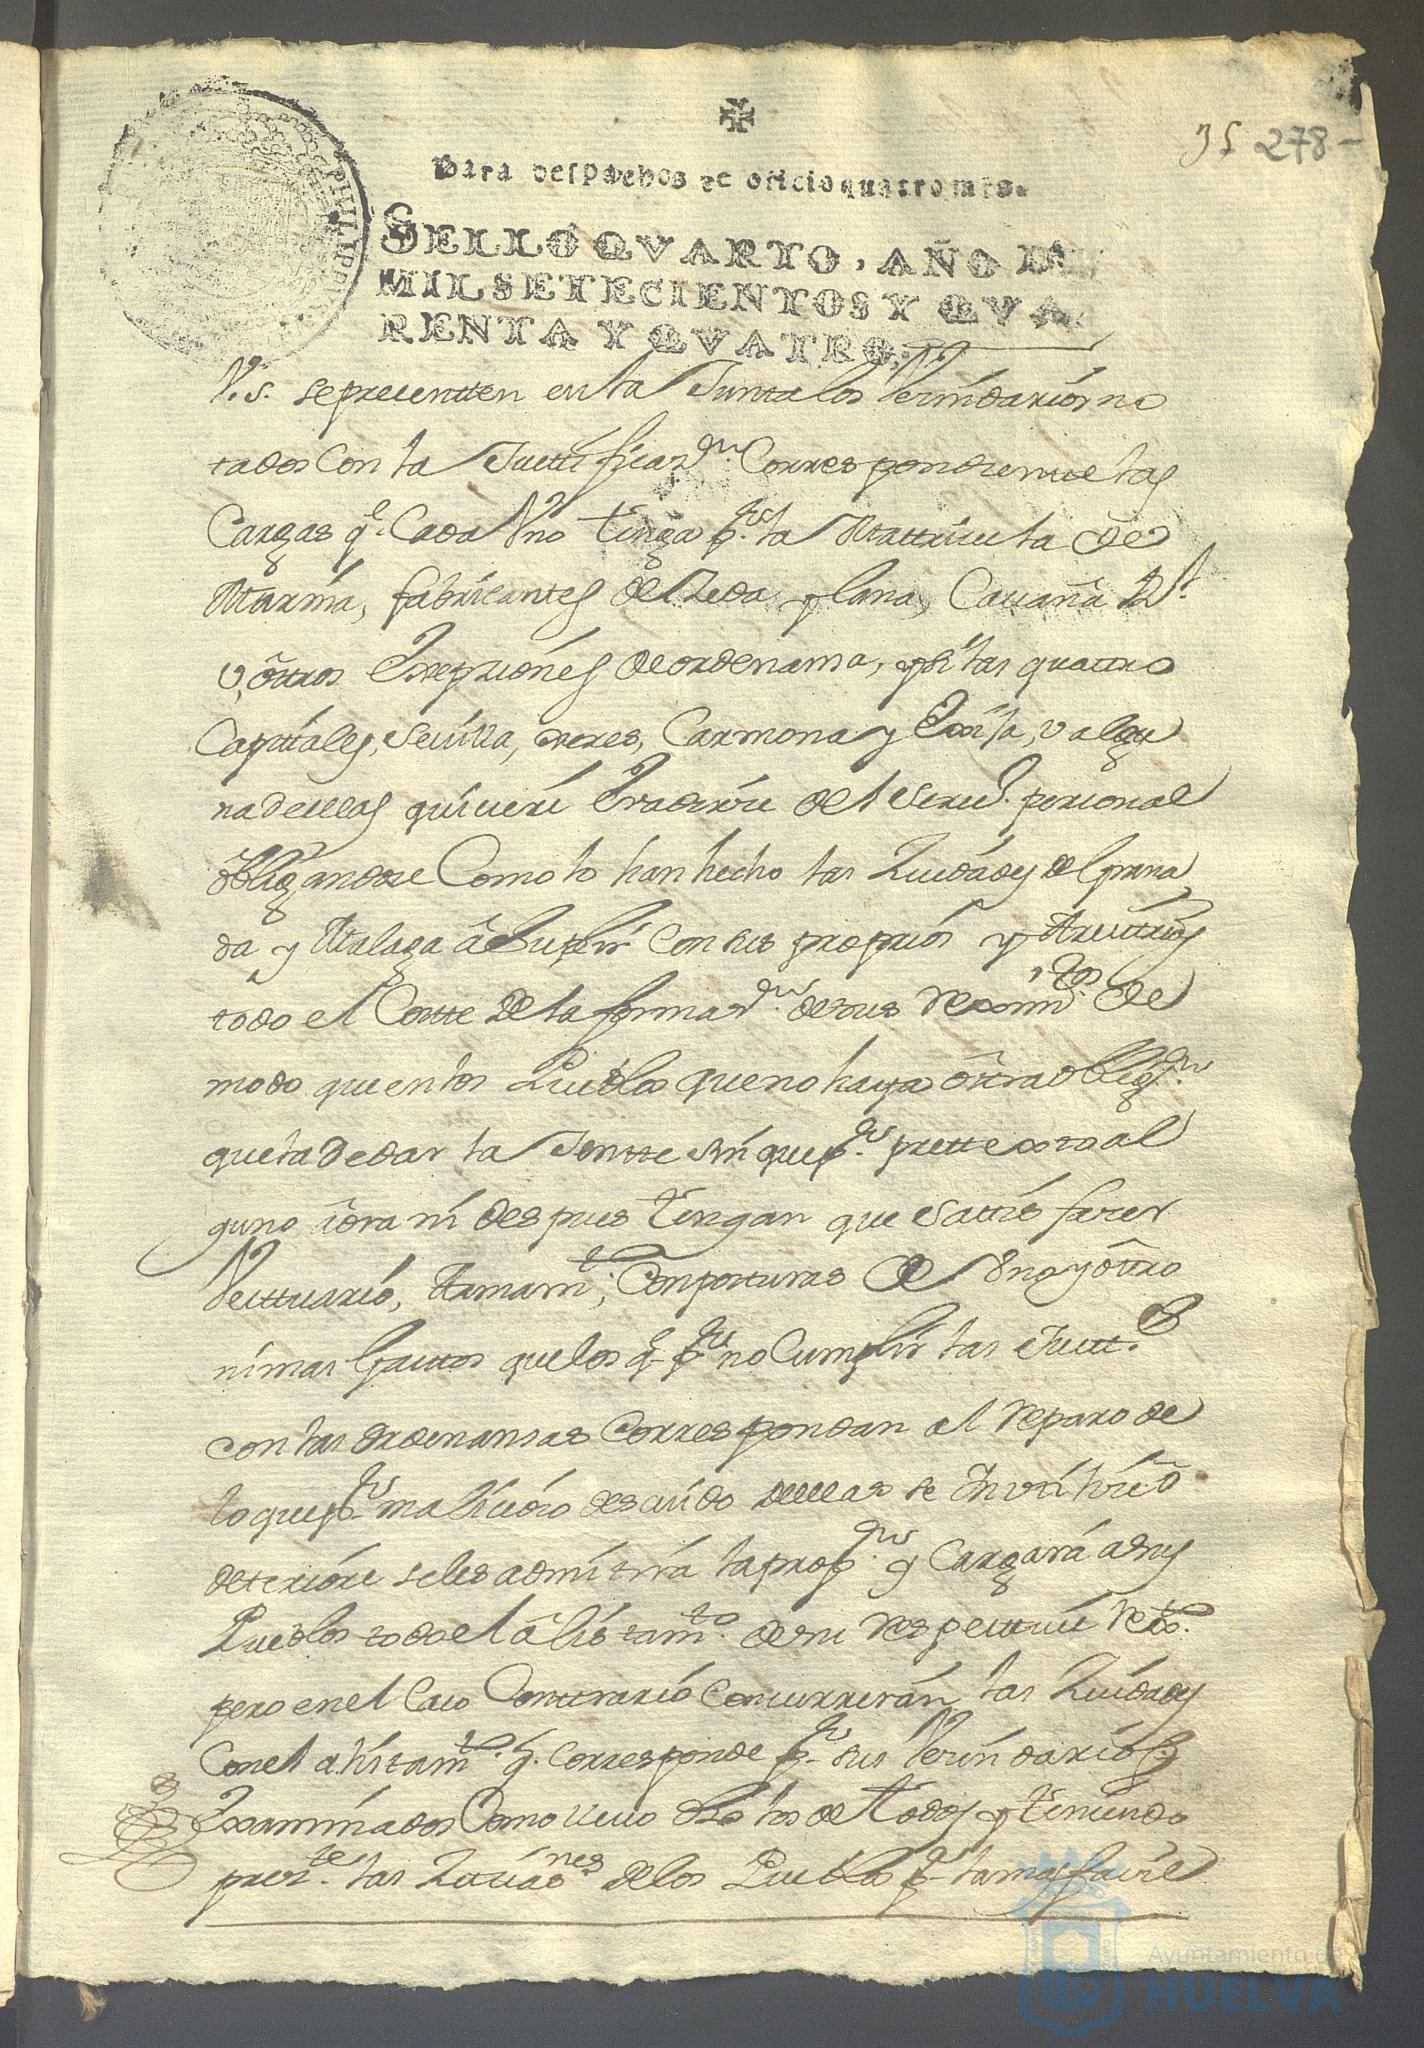 35 278-
PHILIPPVS
Para despachos de oficio quatro mrs.
SELLO QVARTO, AÑO DE
MIL SETECIENTOS Y QVA
RENTA Y QVATRO.
V.S. se precentten en la Junta los Vecindarios no
tados con la Justtificaz.on Correspondiente las
Cargas q.e Cada Vno tenga p.r la Mattricula de
Marina, fabricantes de Seda y lana, Cavaña R.l
v, ôttros Excepciónes de ordenanza, y si las quattro
Capitales, Sevilla, xerez, Carmona y Ecija, v algu
na de ellas quisiere Evadirse del Servi.o personal
obligandose Como lo han hecho las Ziudades de Grana
da y Malaga â Suplir con sus proprios y Arvitrios
todo el Costte de la formaz.on de sus Reximi.tos de
modo que en los Pueblos que no haya ôttra oblig.on
que la de dar la Jentte sin que p.r prettexto al
guno aôra ni despues tengan que sattisfacer
Vesttuario, Armam.to, Composturas de Vno y ôttro
ni mas Gasttos que los q.e p.r no Cumplir las Justt.s
con las ordenansas correspondan al reparo de
lo que p.r malicia o descuido de ellas se Invtilice ô
deteriore se les admitirá la prop.on y Cargará a sus
Pueblos todo el âlistam.to de su respecttivo Rex.to
pero en el Caso Conttrario concurrirán las Ziudades
Con el alistam.to q. corresponde p.r sus Vecindarios
Examinados Como llevo dho los de todos y teniendo
prez.te las Zituaciones de los Pueblos p.a la mas facil
Ayuntamiento de
HUELVA